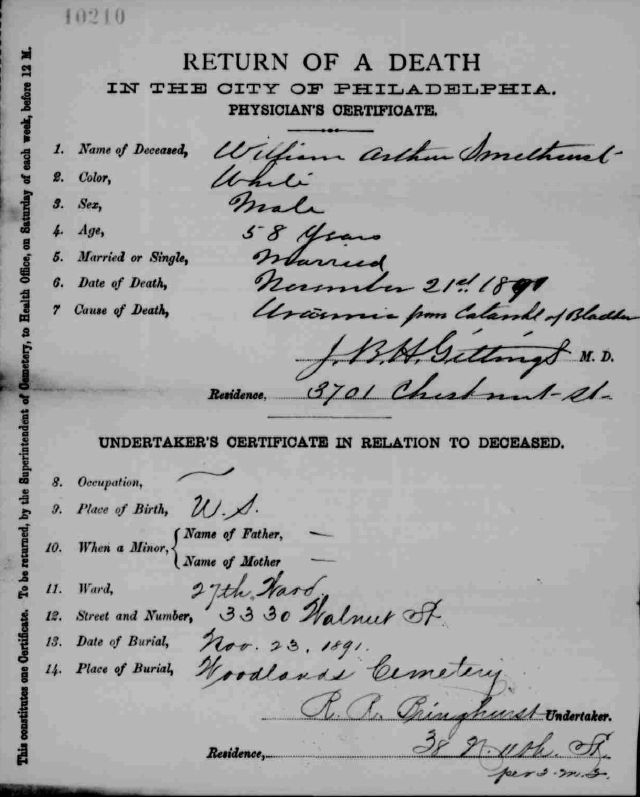 10210
RETURN OF A DEATH
IN THE CITY OF PHILADELPHIA.
PHYSICIAN'S CERTIFICATE.
1. Name of Deceased, William Arthur Smethurst
2. Color, White
3. Sex, Male
4. Age, 58 Years
5. Married or Single, Married
6. Date of Death, November 21st 1891
7 Cause of Death, Uraemia from Catarrh of Bladder
J. B. H. Gittings M. D.
Residence, 3701 Chestnut St
UNDERTAKER'S CERTIFICATE IN RELATION TO DECEASED.
8. Occupation, —
9. Place of Birth, U. S.
10. When a Minor, { Name of Father, —
Name of Mother —
11. Ward, 27th Ward
12. Street and Number, 3330 Walnut St.
13. Date of Burial, Nov. 23, 1891.
14. Place of Burial, Woodlands Cemetery
R. R. Bringhurst Undertaker.
Residence, 38 N. 11th. St.
per
This constitutes one Certificate. To be returned, by the Superintendent of Cemetery, to Health Office, on Saturday of each week, before 12 M.